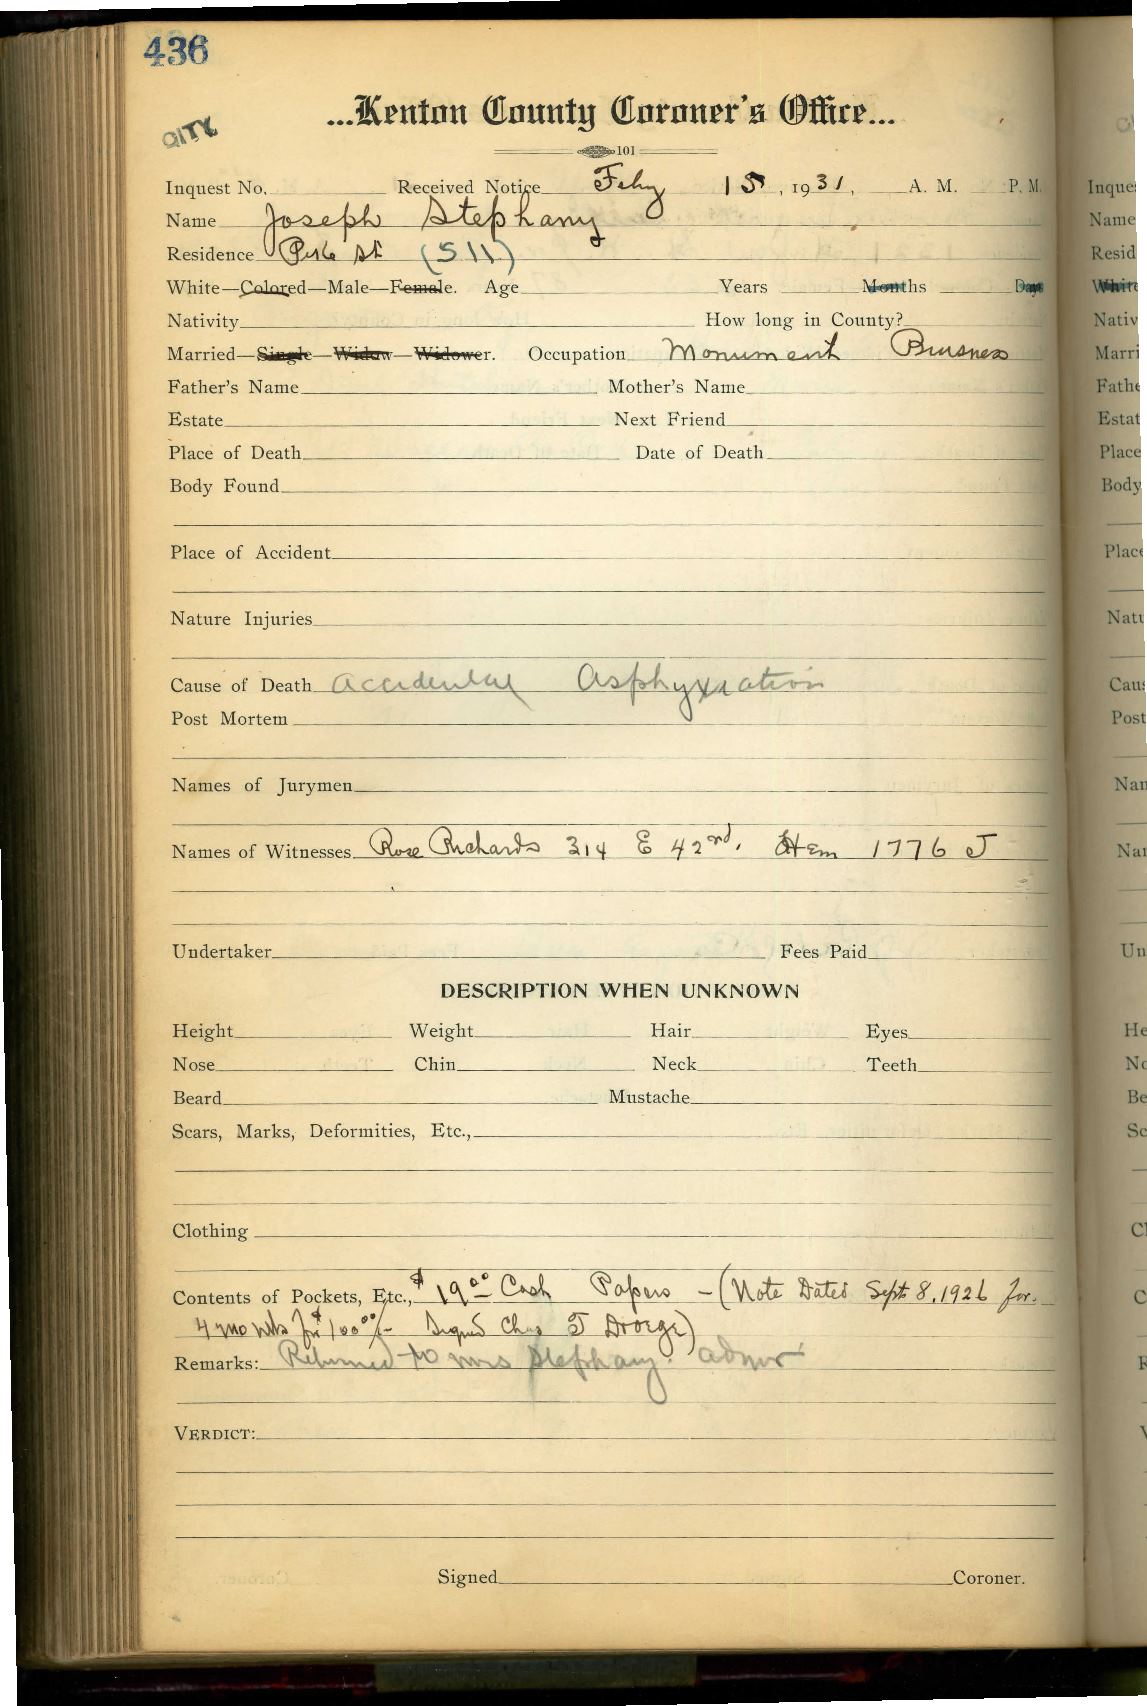 436
CITY
...Kenton County Coroner's Office...
101
Inquest No. Received Notice Feby 15, 1931, A. M. P. M.
Name Joseph Stephany
Residence Pike St (511)
White—Colored—Male—Female. Age Years Months Days
Nativity How long in County?
Married—Single—Widow—Widower. Occupation Monument Business
Father's Name Mother's Name
Estate Next Friend
Place of Death Date of Death
Body Found
Place of Accident
Nature Injuries
Cause of Death Accidental Asphyxiation
Post Mortem
Names of Jurymen
Names of Witnesses Rose Richards 314 E 42nd. Hem 1776 J
Undertaker Fees Paid
DESCRIPTION WHEN UNKNOWN
Height Weight Hair Eyes
Nose Chin Neck Teeth
Beard Mustache
Scars, Marks, Deformities, Etc.,
Clothing
Contents of Pockets, Etc., $19.00 Cash Papers - (Note Dated Sept 8, 1926 for.
4 months for $100 00/- Signed Chas J Droege)
Remarks: Returned to Mrs Stephany. admr
VERDICT:
Signed Coroner.
Inques
Name
Resid
White
Nativ
Marri
Fathe
Estat
Place
Body
Place
Natu
Caus
Post
Nan
Nar
Un
He
No
Be
Sc
Cl
C
R
V